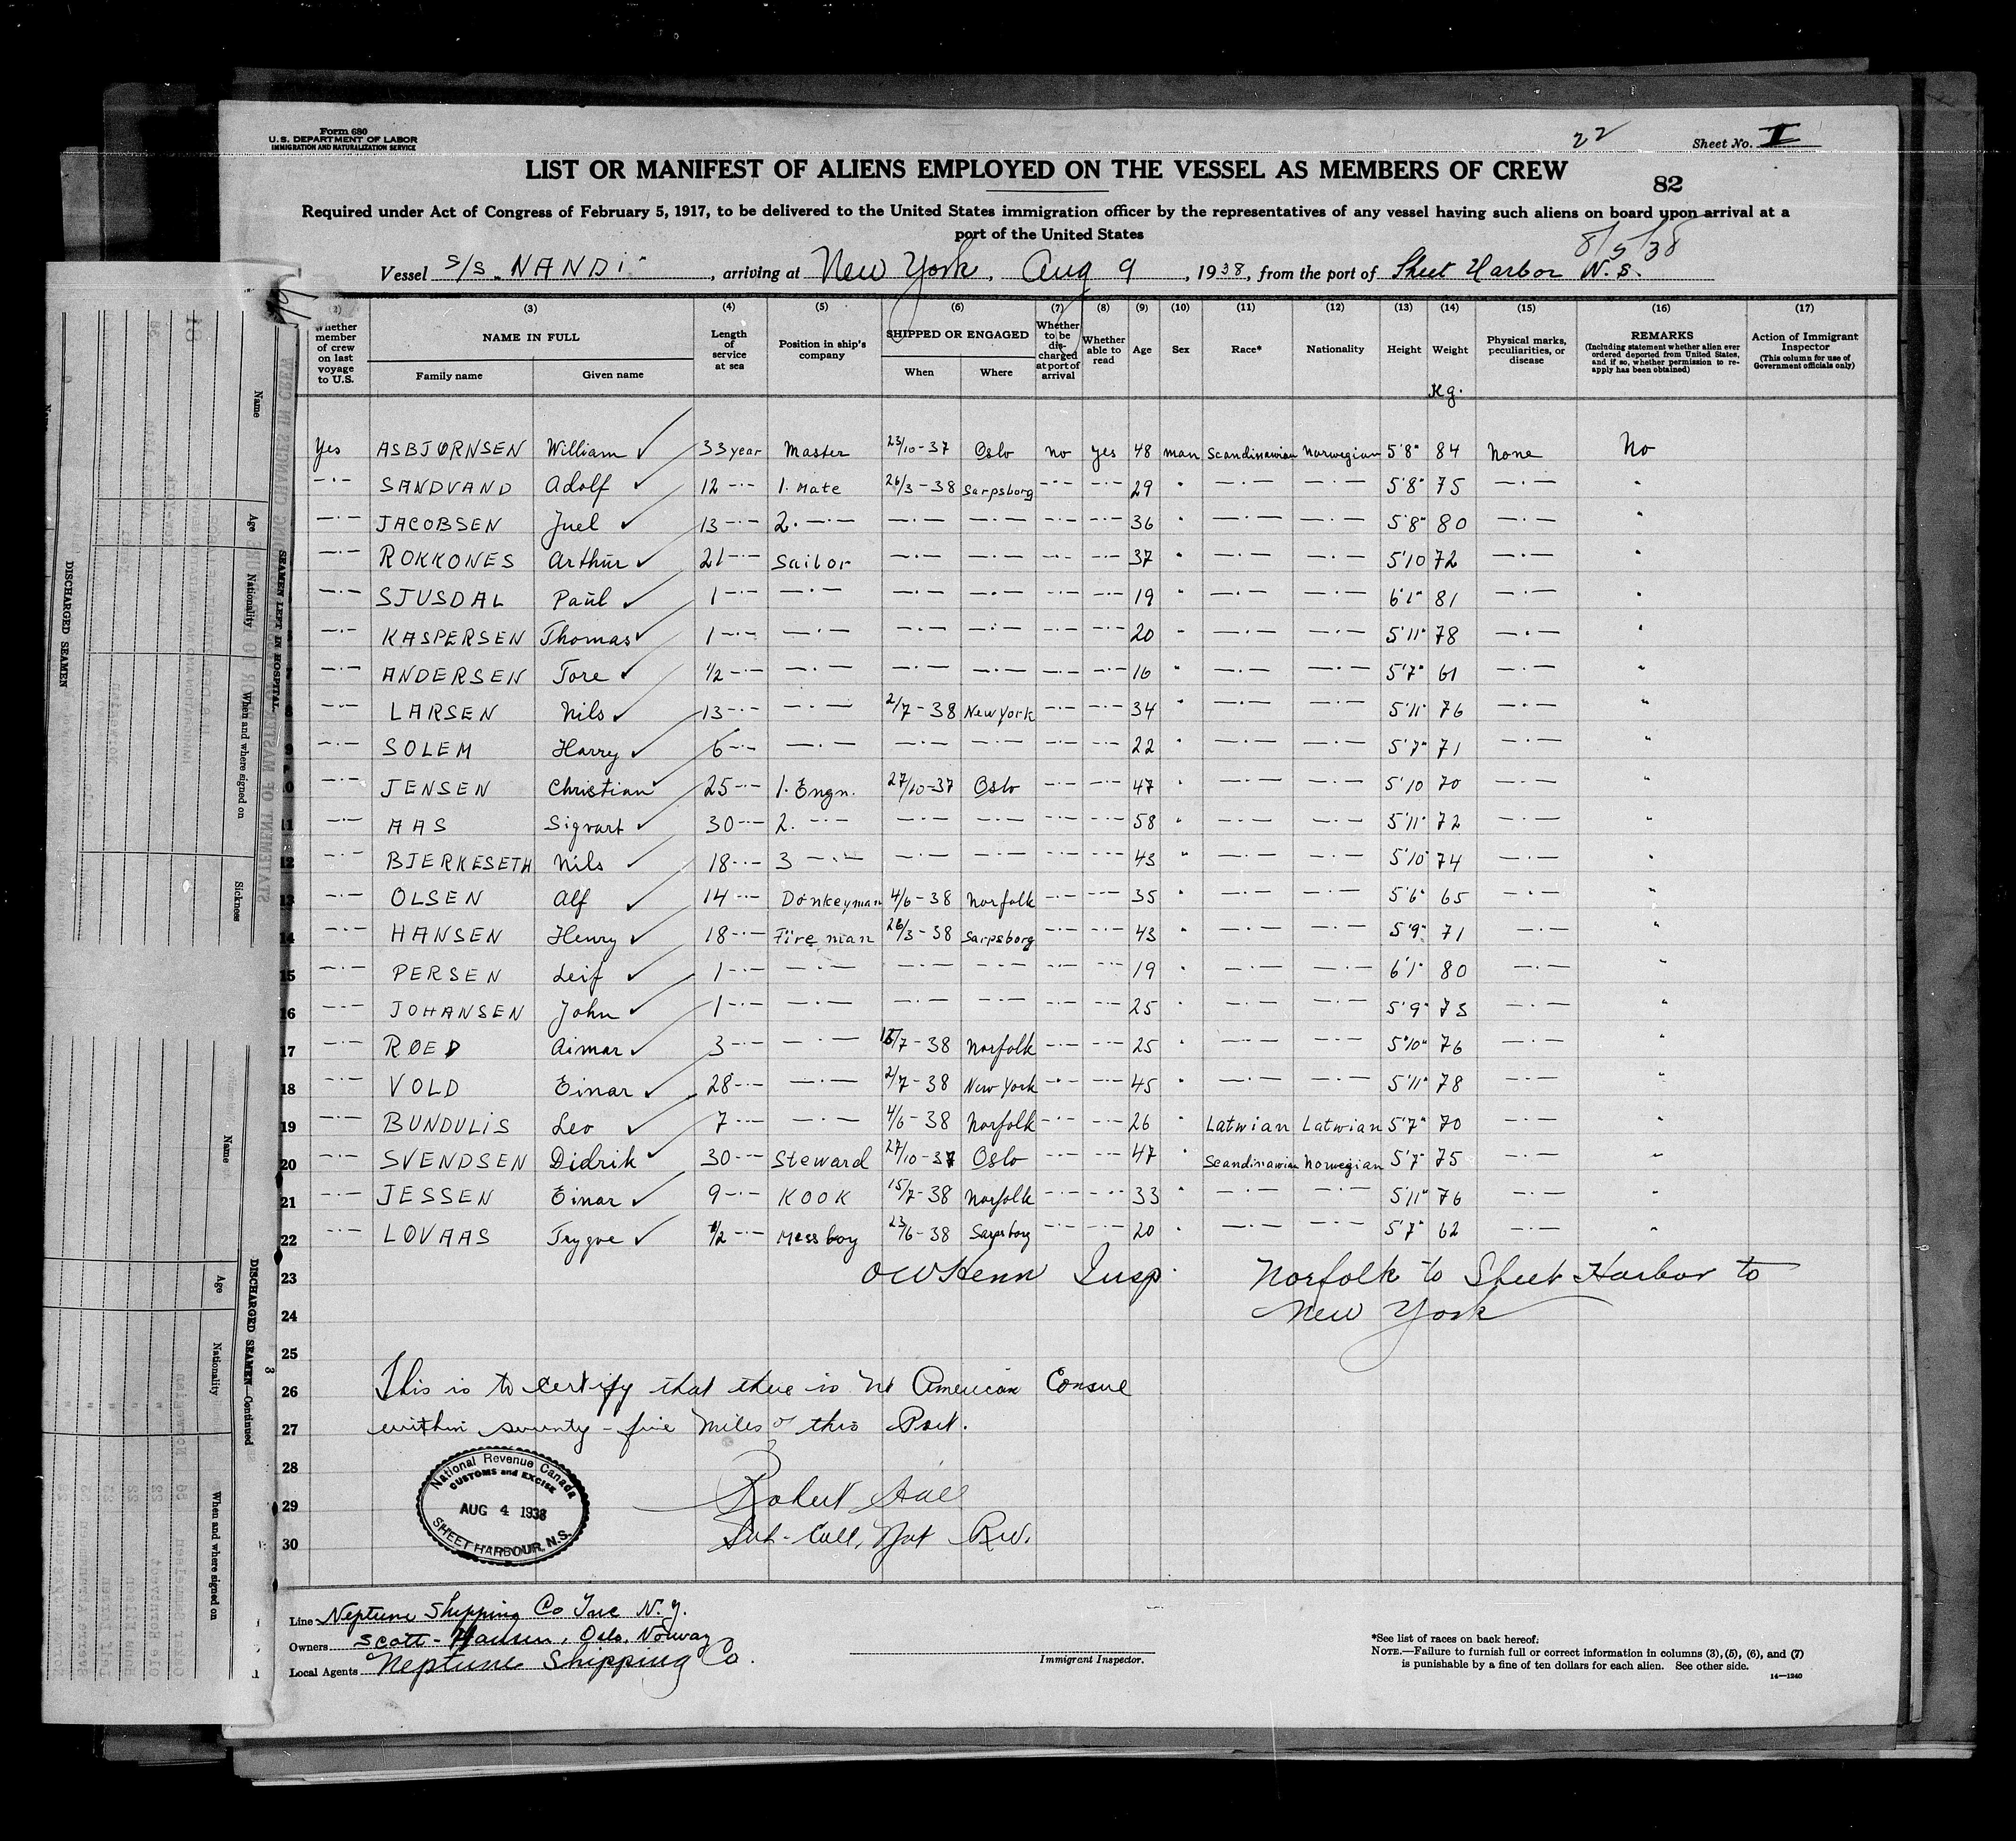 Form 680
U.S. DEPARTMENT OF LABOR
IMMIGRATION AND NATURALIZATION SERVICE
22
Sheet No. I
LIST OR MANIFEST OF ALIENS EMPLOYED ON THE VESSEL AS MEMBERS OF CREW
82
Required under Act of Congress of February 5, 1917, to be delivered to the United States immigration officer by the representatives of any vessel having such aliens on board upon arrival at a
port of the United States
8/5/38
Vessel S/S. "NANDI", arriving at New York, Aug 9, 1938, from the port of Sheet Harbor N.S.
(2) (3) (4) (5) (6) (7) (8) (9) (10) (11) (12) (13) (14) (15) (16) (17)
Whether member of crew on last voyage to U.S.
NAME IN FULL
Family name
Given name
Length of service at sea
Position in ship's company
SHIPPED OR ENGAGED
When
Where
Whether to be discharged at port of arrival
Whether able to read
Age
Sex
Race*
Nationality
Height
Weight
Kg.
Physical marks, peculiarities, or disease
REMARKS
(Including statement whether alien ever ordered deported from United States, and if so, whether permission to reapply has been obtained)
Action of Immigrant Inspector
(This column for use of Government officials only)
Yes ASBJØRNSEN William ✓ 33 year Master 23/10-37 Oslo no yes 48 man Scandinavian Norwegian 5'8" 84 None No
—·— SANDVAND Adolf ✓ 12 —·— 1. Mate 26/3-38 Sarpsborg —·— —·— 29 " —·— —·— 5'8" 75 —·— "
—·— JACOBSEN Juel ✓ 13 —·— 2. —·— —·— —·— —·— —·— 36 " —·— —·— 5'8" 80 —·— "
—·— ROKKONES Arthur ✓ 21 —·— Sailor —·— —·— —·— —·— 37 " —·— —·— 5'10 72 —·— "
—·— SJUSDAL Paul ✓ 1 —·— —·— —·— —·— —·— —·— 19 " —·— —·— 6'1" 81 —·— "
—·— KASPERSEN Thomas ✓ 1 —·— —·— —·— —·— —·— —·— 20 " —·— —·— 5'11" 78 —·— "
—·— ANDERSEN Tore ✓ 1/2 —·— —·— —·— —·— —·— —·— 16 " —·— —·— 5'7" 61 —·— "
8 —·— LARSEN Nils ✓ 13 —·— —·— 2/7-38 New York —·— —·— 34 " —·— —·— 5'11" 76 —·— "
9 —·— SOLEM Harry ✓ 6 —·— —·— —·— —·— —·— —·— 22 " —·— —·— 5'7" 71 —·— "
10 —·— JENSEN Christian ✓ 25 —·— 1. Engn. 27/10-37 Oslo —·— —·— 47 " —·— —·— 5'10 70 —·— "
11 —·— AAS Sigvart ✓ 30 —·— 2. —·— —·— —·— —·— —·— 58 " —·— —·— 5'11" 72 —·— "
12 —·— BJERKESETH Nils ✓ 18 —·— 3 —·— —·— —·— —·— —·— 43 " —·— —·— 5'10" 74 —·— "
13 —·— OLSEN Alf ✓ 14 —·— Donkeyman 4/6-38 Norfolk —·— —·— 35 " —·— —·— 5'6" 65 —·— "
14 —·— HANSEN Henry ✓ 18 —·— Fireman 26/3-38 Sarpsborg —·— —·— 43 " —·— —·— 5'9" 71 —·— "
15 —·— PERSEN Leif ✓ 1 —·— —·— —·— —·— —·— —·— 19 " —·— —·— 6'1" 80 —·— "
16 —·— JOHANSEN John ✓ 1 —·— —·— —·— —·— —·— —·— 25 " —·— —·— 5'9" 73 —·— "
17 —·— ROED Aimar ✓ 3 —·— —·— 15/7-38 Norfolk —·— —·— 25 " —·— —·— 5'10" 76 —·— "
18 —·— VOLD Einar ✓ 28 —·— —·— 2/7-38 New York —·— —·— 45 " —·— —·— 5'11" 78 —·— "
19 —·— BUNDULIS Leo ✓ 7 —·— —·— 4/6-38 Norfolk —·— —·— 26 " Latwian Latwian 5'7" 70 —·— "
20 —·— SVENDSEN Didrik ✓ 30 —·— Steward 27/10-37 Oslo —·— —·— 47 " Scandinavian Norwegian 5'7" 75 —·— "
21 —·— JESSEN Einar ✓ 9 —·— KOOK 15/7-38 Norfolk —·— —·— 33 " —·— —·— 5'11" 76 —·— "
22 —·— LØVAAS Trygve ✓ 1/2 —·— Messboy 23/6-38 Sarpsborg —·— —·— 20 " —·— —·— 5'7" 62 —·— "
23 OW Henn Insp. Norfolk to Sheet Harbor to
24 New York
25
26 This is to certify that there is no American Consul
27 within seventy-five miles of this Port.
28
29 Robert Hall
30 Sub-Coll. Nat Rev.
National Revenue Canada
CUSTOMS and EXCISE
AUG 4 1938
SHEET HARBOUR, N.S.
Line Neptune Shipping Co Inc N.Y.
Owners Scott-Hansen, Oslo, Norway
Local Agents Neptune Shipping Co.
Immigrant Inspector.
*See list of races on back hereof.
NOTE.—Failure to furnish full or correct information in columns (3), (5), (6), and (7)
is punishable by a fine of ten dollars for each alien. See other side.
14—1240
DISCHARGED SEAMEN
Name
Age
Nationality
When and where signed on
Sickness
SEAMEN LEFT IN HOSPITAL
DISCHARGED SEAMEN—Continued
3
Name
Age
Nationality
When and where signed on